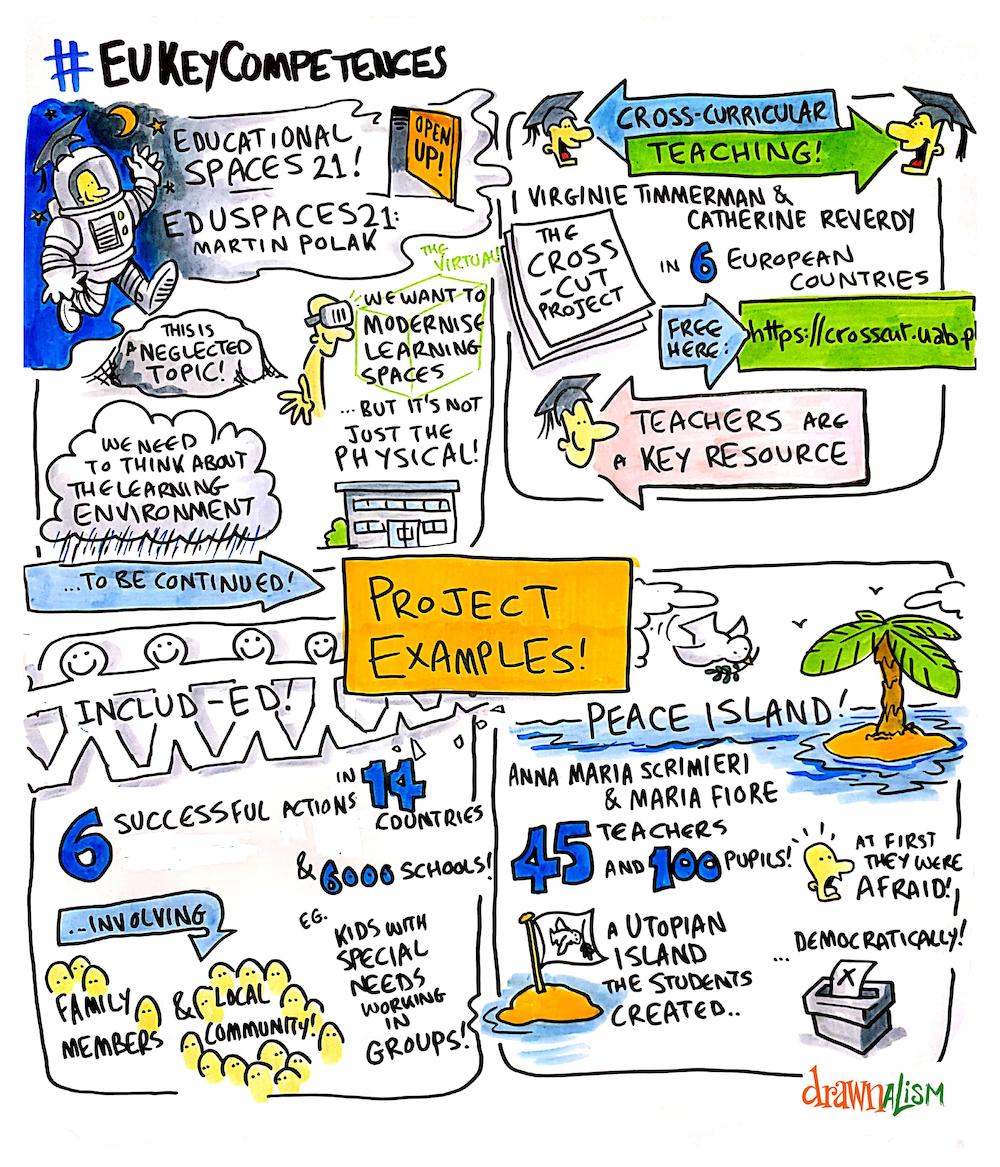 #EUKEYCOMPETENCES
EDUCATIONAL
SPACES 21!
OPEN
UP!
EDUSPACES21:
MARTIN POLAK
THE
VIRTUAL!
WE WANT TO
MODERNISE
LEARNING
SPACES
THIS IS
A NEGLECTED
TOPIC!
...BUT IT'S NOT
JUST THE
PHYSICAL!
WE NEED
TO THINK ABOUT
THE LEARNING
ENVIRONMENT
...TO BE CONTINUED!
CROSS-CURRICULAR
TEACHING!
VIRGINIE TIMMERMAN &
CATHERINE REVERDY
THE
CROSS
-CUT
PROJECT
IN 6 EUROPEAN
COUNTRIES
FREE
HERE:
https://crosscut.uab.p
TEACHERS ARE
A KEY RESOURCE
PROJECT
EXAMPLES!
INCLUD-ED!
6 SUCCESSFUL ACTIONS IN 14
COUNTRIES
& 6000 SCHOOLS!
...INVOLVING
FAMILY
MEMBERS
& LOCAL
COMMUNITY!
EG.
KIDS WITH
SPECIAL
NEEDS
WORKING
IN
GROUPS!
PEACE ISLAND!
ANNA MARIA SCRIMIERI
& MARIA FIORE
45 TEACHERS
AND 100 PUPILS!
AT FIRST
THEY WERE
AFRAID!
A UTOPIAN
ISLAND
THE STUDENTS
CREATED..
... DEMOCRATICALLY!
X
drawnALISM